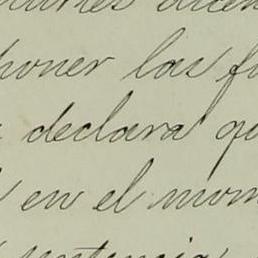 poner las f
declara qu
en el mom
sentencia